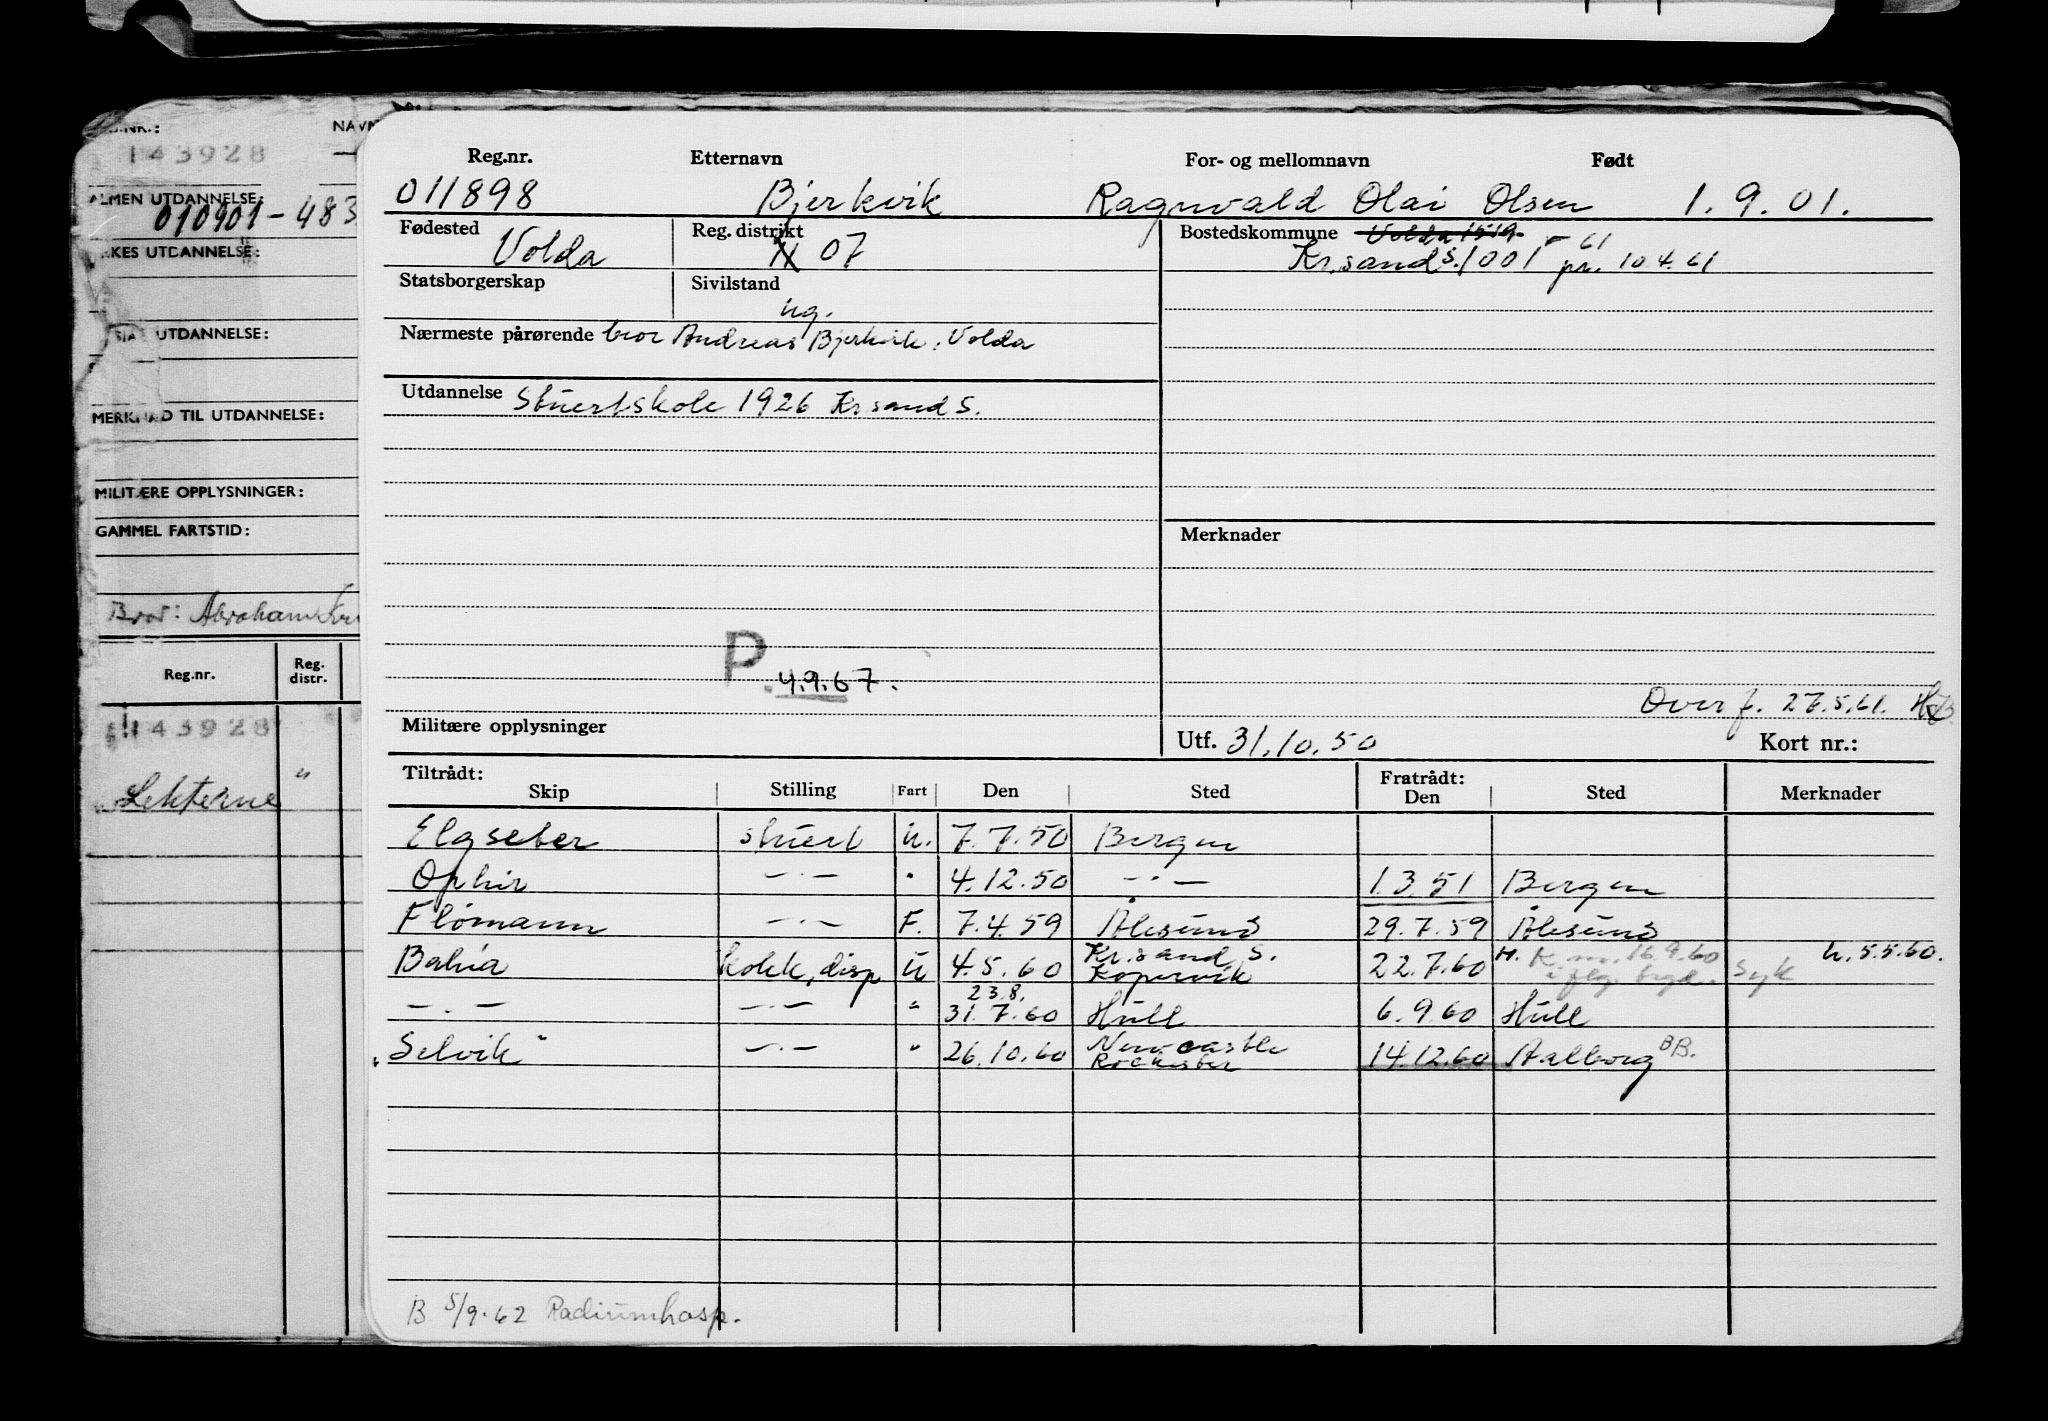 NAVN
143928
ALMEN UTDANNELSE:
010901-483
KES UTDANNELSE:
UTDANNELSE:
MERKNAD TIL UTDANNELSE:
MILITÆRE OPPLYSNINGER:
GAMMEL FARTSTID:
Bror: Abraham
Reg.nr. Reg. distr.
143928
Lekterne "
Reg.nr. Etternavn For- og mellomnavn Født
011898 Bjerkvik Ragnvald Olai Olsen 1.9.01.
Fødested Volda Reg. distrikt 07 Bostedskommune Volda 1519 - 61
Kr.sand S. 1001 pr. 10.4.61
Statsborgerskap Sivilstand ug.
Nærmeste pårørende bror Andreas Bjerkvik, Volda
Utdannelse Stuertskole 1926 Kr.sand S.
Merknader
P. 4.9.67.
Overf. 27.5.61. HB
Militære opplysninger Utf. 31.10.50 Kort nr.:
Tiltrådt: Fratrådt:
Skip Stilling Fart Den Sted Den Sted Merknader
Elgseter stuert u. 7.7.50 Bergen
Ophir -·- " 4.12.50 -·- 1.3.51 Bergen
Flømann -·- F. 7.4.59 Ålesund 29.7.59 Ålesund
Bahia kokk, disp u 4.5.60 Kr.sand S. Kopervik 22.7.60 H. K.m. 16.9.60 i flg. Syk h. 5.5.60.
-·- -·- " 23.8. 31.7.60 Hull 6.9.60 Hull
"Selvik" -·- " 26.10.60 Newcastle Rochester 14.12.60 Aalborg BB.
B 5/9-62 Radiumhosp.